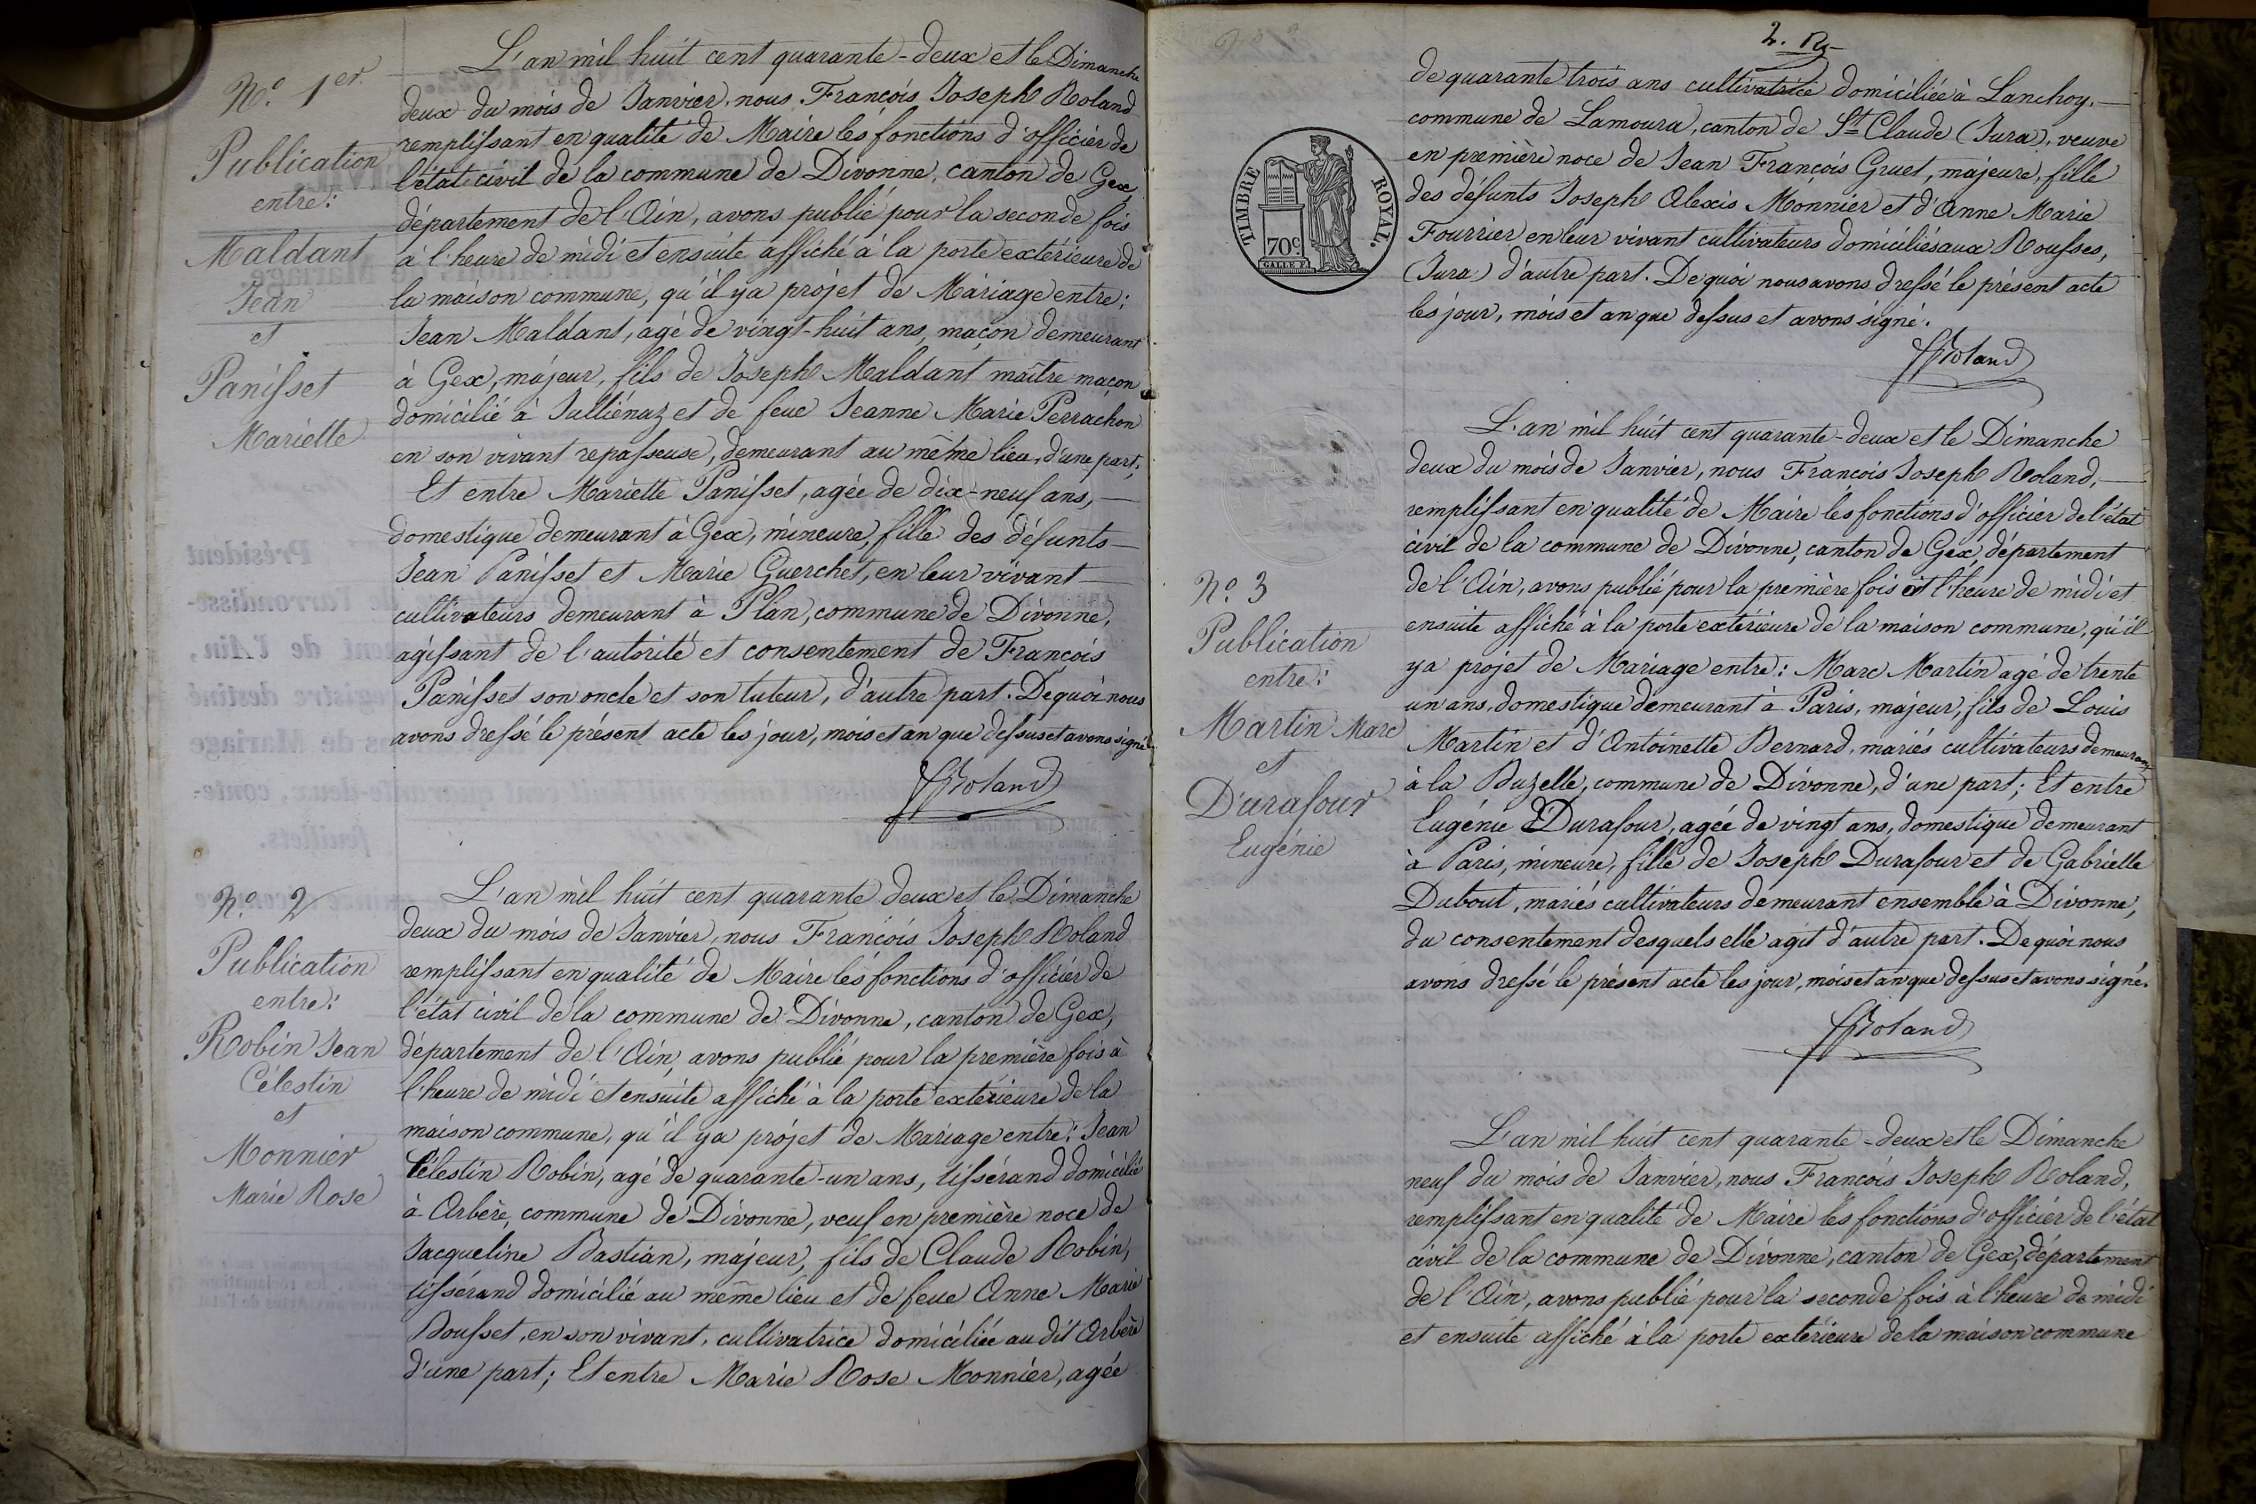 N.o 1er
Publication
entre:
Maldant
Jean
et
Panisset
Mariette
L'an mil huit cent quarante-deux et le Dimanche
deux du mois de Janvier, nous François Joseph Roland
remplissant en qualité de Maire les fonctions d'officier de
l'état civil de la commune de Divonne, canton de Gex
département de l'Ain, avons publié pour la seconde fois
à l'heure de midi et ensuite affiché à la porte extérieure de
la maison commune, qu'il ya projet de Mariage entre:
Jean Maldant, agé de vingt-huit ans, maçon demeurant
à Gex, majeur, fils de Joseph Maldant maître maçon
domicilié à Julliénaz et de feue Jeanne Marie Perrachon
en son vivant repasseuse, demeurant au même lieu, d'une part;
Et entre Mariette Panisset, agée de dix-neuf ans,
domestique demeurant à Gex, mineure, fille des défunts
Jean Panisset et Marie Guerchet, en leur vivant
cultivateurs demeurant à Plan, commune de Divonne,
agissant de l'autorité et consentement de François
Panisset son oncle et son tuteur, d'autre part. De quoi nous
avons dressé le présent acte les jour, mois et an que dessus et avons signé
Roland
N.o 2
Publication
entre:
Robin Jean
Célestin
et
Monnier
Marie Rose
L'an mil huit cent quarante deux et le Dimanche
deux du mois de Janvier, nous François Joseph Roland
remplissant en qualité de Maire les fonctions d'officier de
l'état civil de la commune de Divonne, canton de Gex,
département de l'Ain, avons publié pour la première fois à
l'heure de midi et ensuite affiché à la porte extérieure de la
maison commune, qu'il ya projet de Mariage entre: Jean
Célestin Robin, agé de quarante-un ans, tissérand domicilié
à Arbère, commune de Divonne, veuf en première noce de
Jacqueline Bastian, majeur, fils de Claude Robin,
tissérand domicilié au même lieu et de feue Anne Marie
Rousset, en son vivant, cultivatrice domiciliée au dit Arbère
d'une part; Et entre Marie Rose Monnier, agée
2.
de quarante trois ans cultivatrice domiciliée à Lanchoy,
commune de Lamoura, canton de St Claude (Jura), veuve
en première noce de Jean François Gruet, majeure, fille
des défunts Joseph Alexis Monnier et d'Anne Marie
Fourrier en leur vivant cultivateurs domiciliés aux Rousses,
(Jura) d'autre part. De quoi nous avons dressé le présent acte
les jour, mois et an que dessus et avons signé.
Roland
TIMBRE ROYAL.
70c
GALLE F.
N.o 3
Publication
entre:
Martin Marc
et
Durafour
Eugénie
L'an mil huit cent quarante-deux et le Dimanche
deux du mois de Janvier, nous François Joseph Roland,
remplissant en qualité de Maire les fonctions d'officier de l'état
civil de la commune de Divonne, canton de Gex département
de l'Ain, avons publié pour la première fois à l'heure de midi et
ensuite affiché à la porte extérieure de la maison commune, qu'il
ya projet de Mariage entre: Marc Martin agé de trente
un ans, domestique demeurant à Paris, majeur, fils de Louis
Martin et d'Antoinette Bernard, mariés cultivateurs demeurant
à la Buzelle, commune de Divonne, d'une part; Et entre
Eugénie Durafour, agée de vingt ans, domestique demeurant
à Paris, mineure, fille de Joseph Durafour et de Gabrielle
Dubout, mariés cultivateurs demeurant ensemble à Divonne,
du consentement desquels elle agit d'autre part. De quoi nous
avons dressé le présent acte les jour, mois et an que dessus et avons signé.
Roland
L'an mil huit cent quarante-deux et le Dimanche
neuf du mois de Janvier, nous François Joseph Roland,
remplissant en qualité de Maire les fonctions d'officier de l'état
civil de la commune de Divonne, canton de Gex, département
de l'Ain, avons publié pour la seconde fois à l'heure de midi
et ensuite affiché à la porte extérieure de la maison commune